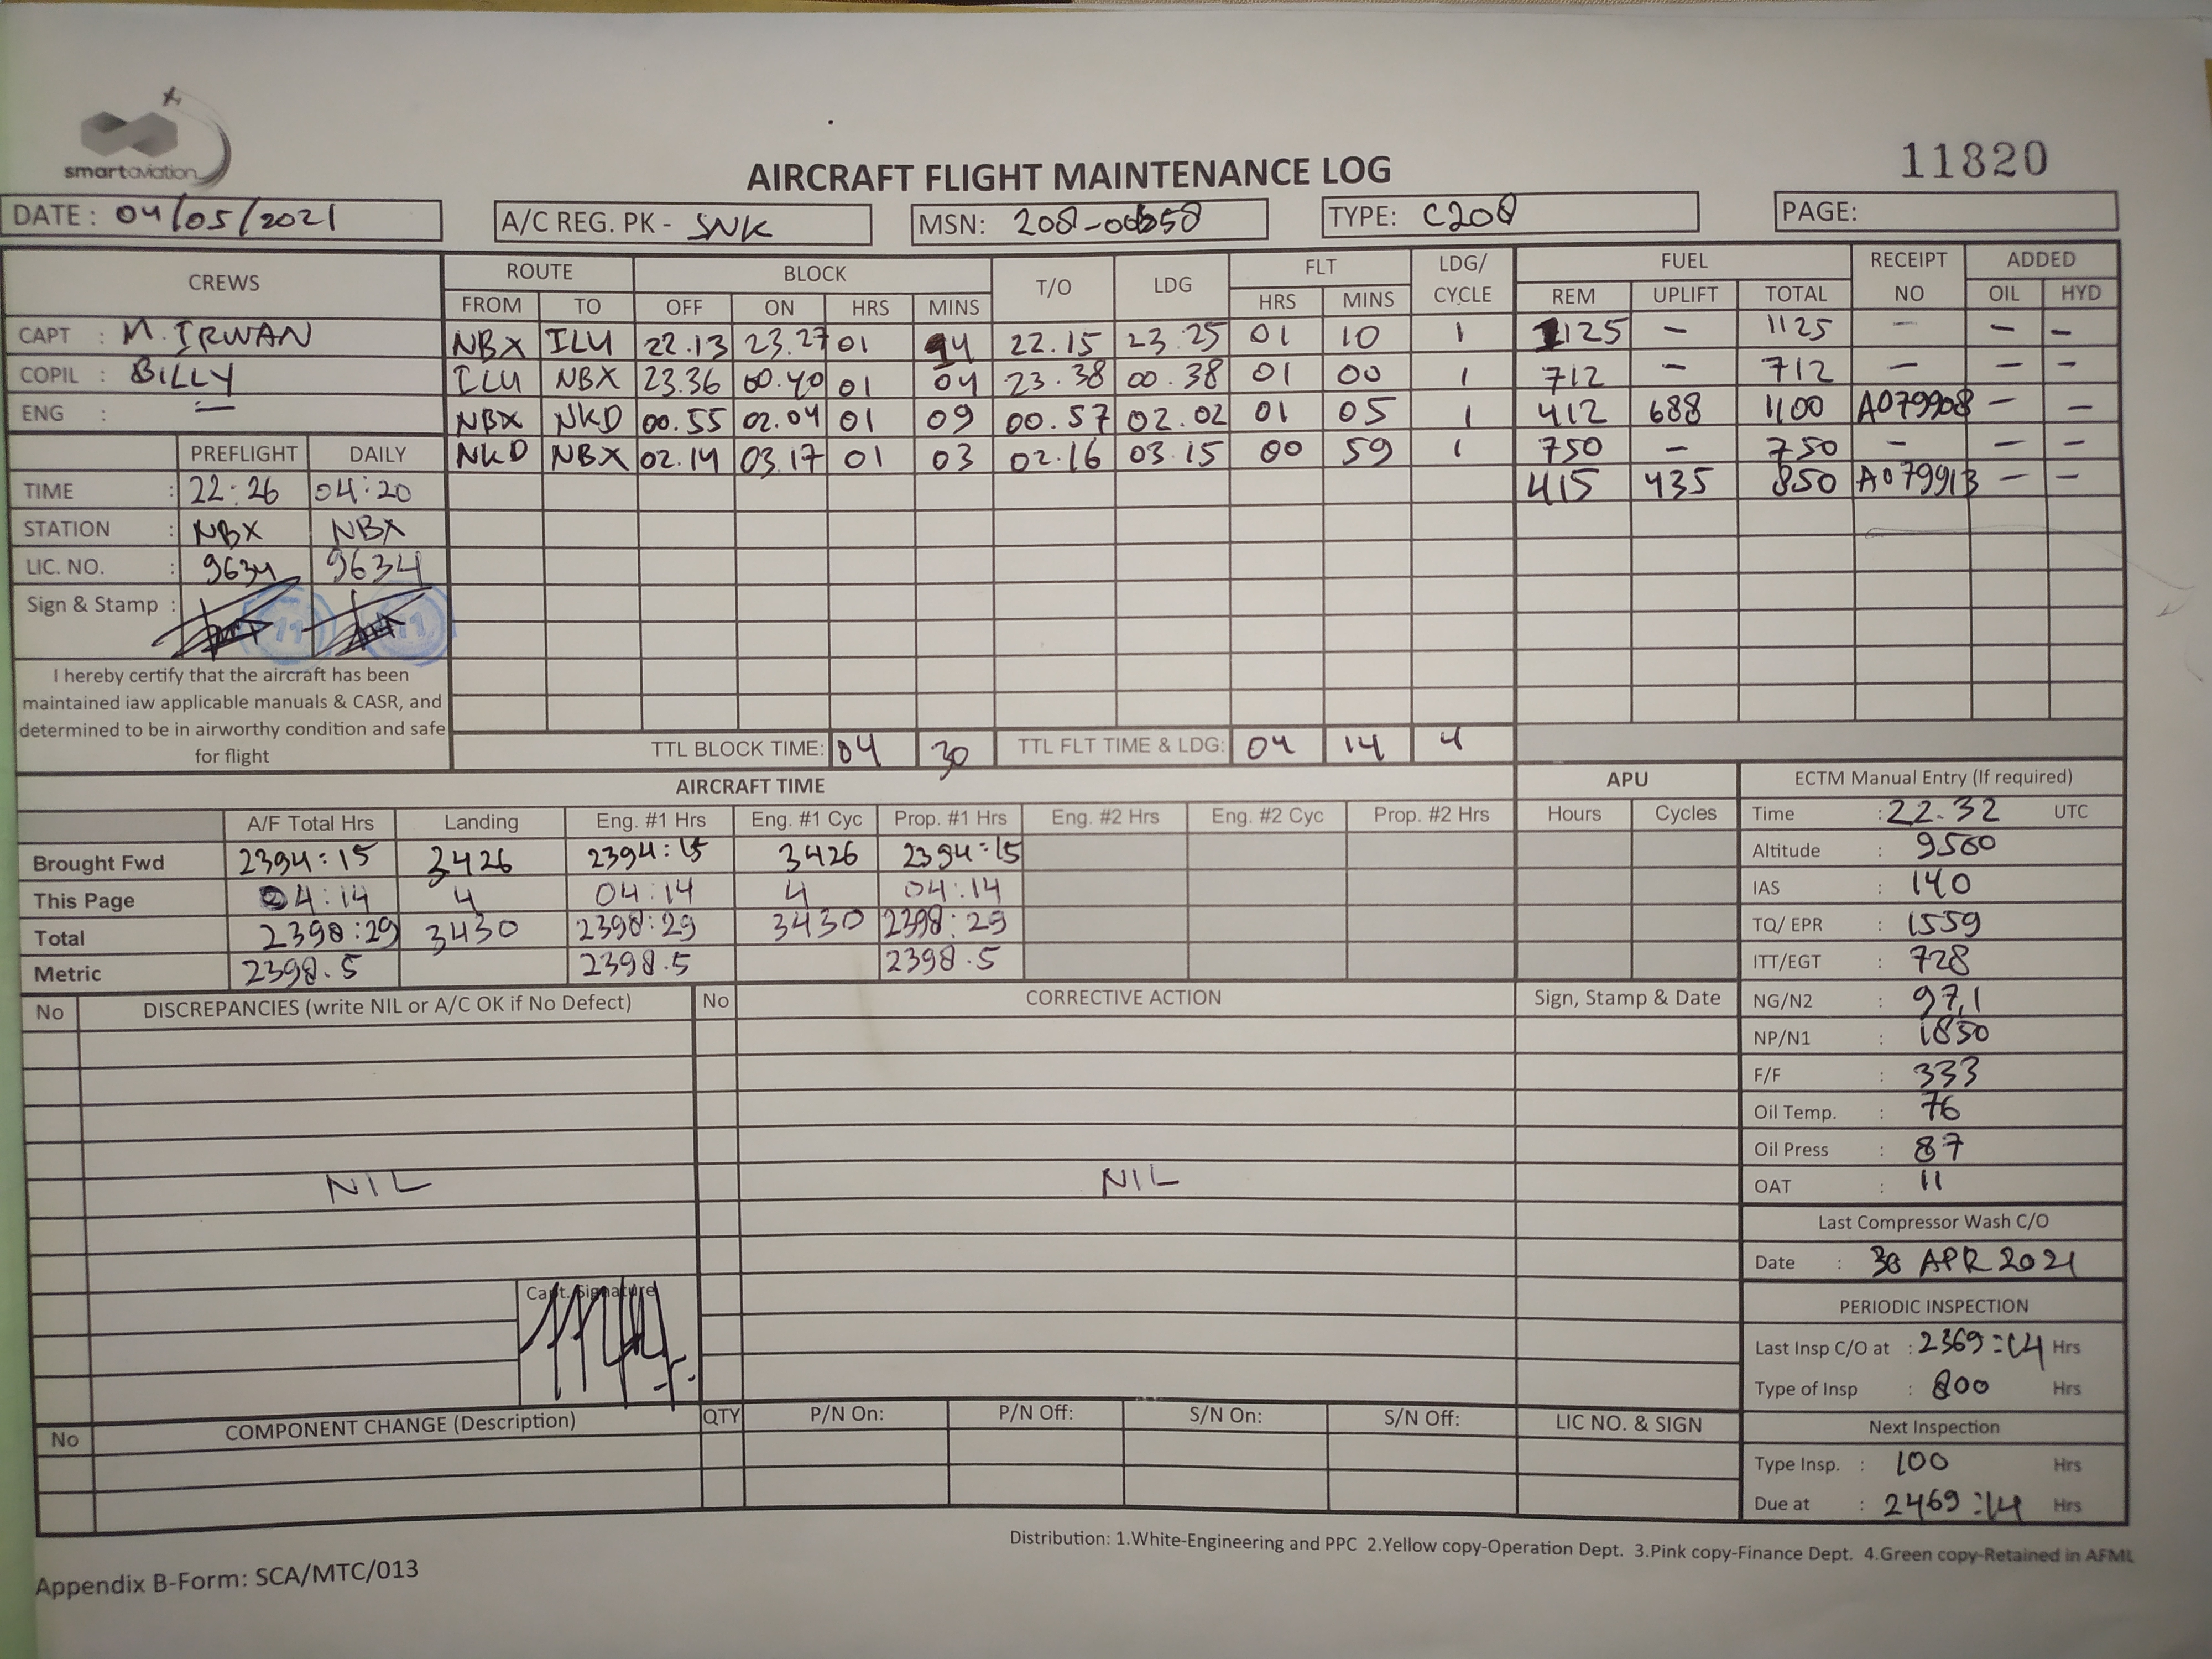 smartaviation
11820
AIRCRAFT FLIGHT MAINTENANCE LOG
DATE : 04/05/2021 A/C REG. PK - SNK MSN: TYPE: C208 PAGE:
CREWS ROUTE BLOCK T/O LDG FLT LDG/ CYCLE FUEL RECEIPT NO ADDED
FROM TO OFF ON HRS MINS HRS MINS REM UPLIFT TOTAL OIL HYD
CAPT : M. IRWAN NBX ILU 22.13 23.27 01 14 22.15 23.25 01 10 1 1125 - 1125 - - -
COPIL : BILLY ILU NBX 23.36 00.40 01 04 23.38 00.38 01 00 1 712 - 712 - - -
ENG : - NBX NKD 00.55 02.04 01 09 00.57 02.02 01 05 1 412 688 1100 A079908 - -
PREFLIGHT DAILY NKD NBX 02.14 03.17 01 03 02.16 03.15 00 59 1 750 - 750 - - -
TIME : 22:26 04:20 415 435 850 A079913 - -
STATION : NBX NBX
LIC. NO. : 9634 9634
Sign & Stamp :
I hereby certify that the aircraft has been
maintained iaw applicable manuals & CASR, and
determined to be in airworthy condition and safe
for flight
TTL BLOCK TIME: 04 30 TTL FLT TIME & LDG: 04 14 4
AIRCRAFT TIME APU ECTM Manual Entry (If required)
A/F Total Hrs Landing Eng. #1 Hrs Eng. #1 Cyc Prop. #1 Hrs Eng. #2 Hrs Eng. #2 Cyc Prop. #2 Hrs Hours Cycles
Brought Fwd 2394:15 3426 2394:15 3426 2394:15
This Page 04:14 4 04:14 4 04:14
Total 2398:29 3430 2398:29 3430 2398:29
Metric 2398.5 2398.5 2398.5
Time : 22.32 UTC
Altitude : 9500
IAS : 140
TQ/ EPR : 1559
ITT/EGT : 728
NG/N2 : 97,1
NP/N1 : 1850
F/F : 333
Oil Temp. : 76
Oil Press : 87
OAT : 11
No DISCREPANCIES (write NIL or A/C OK if No Defect) No CORRECTIVE ACTION Sign, Stamp & Date
NIL NIL
Capt. Signature
Last Compressor Wash C/O
Date : 30 APR 2021
PERIODIC INSPECTION
Last Insp C/O at : 2369:14 Hrs
Type of Insp : 800 Hrs
Next Inspection
Type Insp. : 100 Hrs
Due at : 2469:14 Hrs
No COMPONENT CHANGE (Description) QTY P/N On: P/N Off: S/N On: S/N Off: LIC NO. & SIGN
Distribution: 1.White-Engineering and PPC 2.Yellow copy-Operation Dept. 3.Pink copy-Finance Dept. 4.Green copy-Retained in AFML
Appendix B-Form: SCA/MTC/013